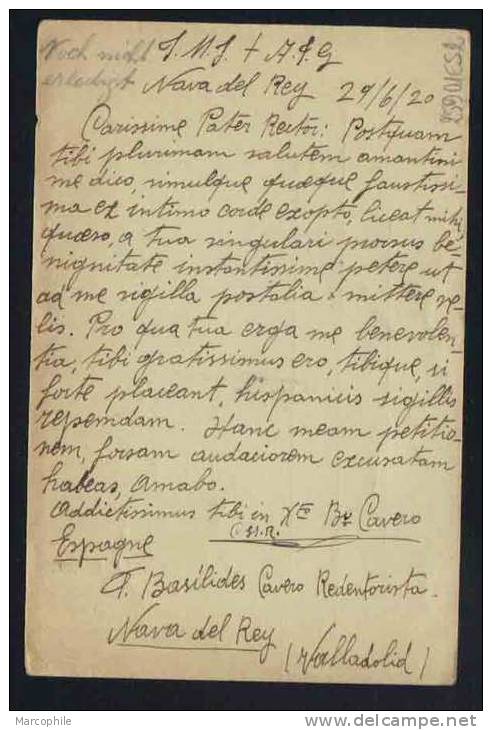 Noch nicht
erledigt
J. M. J. + A. J. G
Nava del Rey 29/6/20
Carissime Pater Rector: Postquam
tibi plurimam salutem amantissi
me dico, simulque quæque faustissi-
ma ex intimo corde exopto, liceat mihi,
quæso, a tua singulari prorsus be-
nignitate instantissime petere ut
ad me sigilla postalia mittere ve-
lis. Pro qua tua erga me benevolen-
tia, tibi gratissimus ero, tibique, si
forte placeant, hispanicis sigillis
rependam. Hanc meam petitio-
nem, forsam audaciorem excusatam
habeas, amabo.
Addictissimus tibi in Xto Br Cavero
C.SS.R.
Espagne
F. Basílides Cavero Redentorista.
Nava del Rey
(Valladolid)
Marcophile
www.delcampe.net